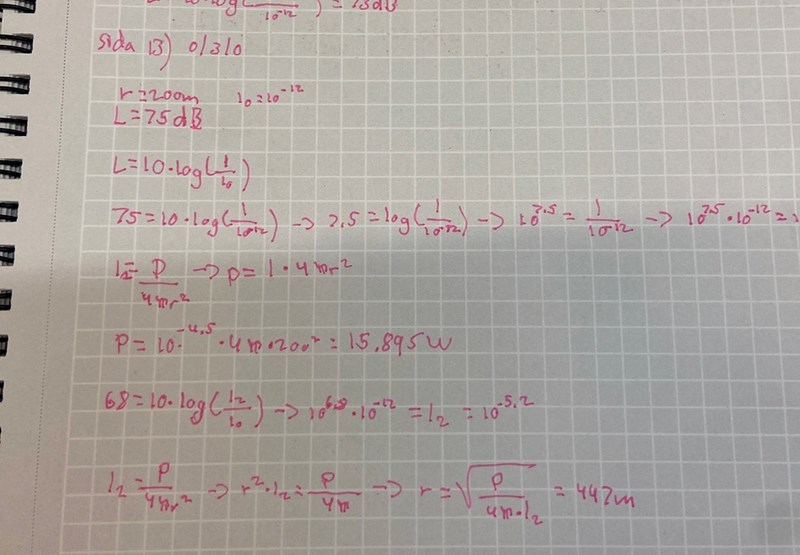 10^-12) = 75dB
Sida 13) 01310
r = 200m l₀ = 10^-12
L = 75dB
L = 10 · log(l/l₀)
75 = 10 · log(l/10^-12) → 7.5 = log(l/10^-12) → 10^7.5 = l/10^-12 → 10^7.5 · 10^-12 =
l = P/4πr² → p = l · 4πr²
P = 10^-4.5 · 4π · 200² = 15.895W
68 = 10 · log(l₂/l₀) → 10^6.8 · 10^-12 = l₂ = 10^-5.2
l₂ = P/4πr² → r² · l₂ = P/4π → r = √(P/4π·l₂) = 447m